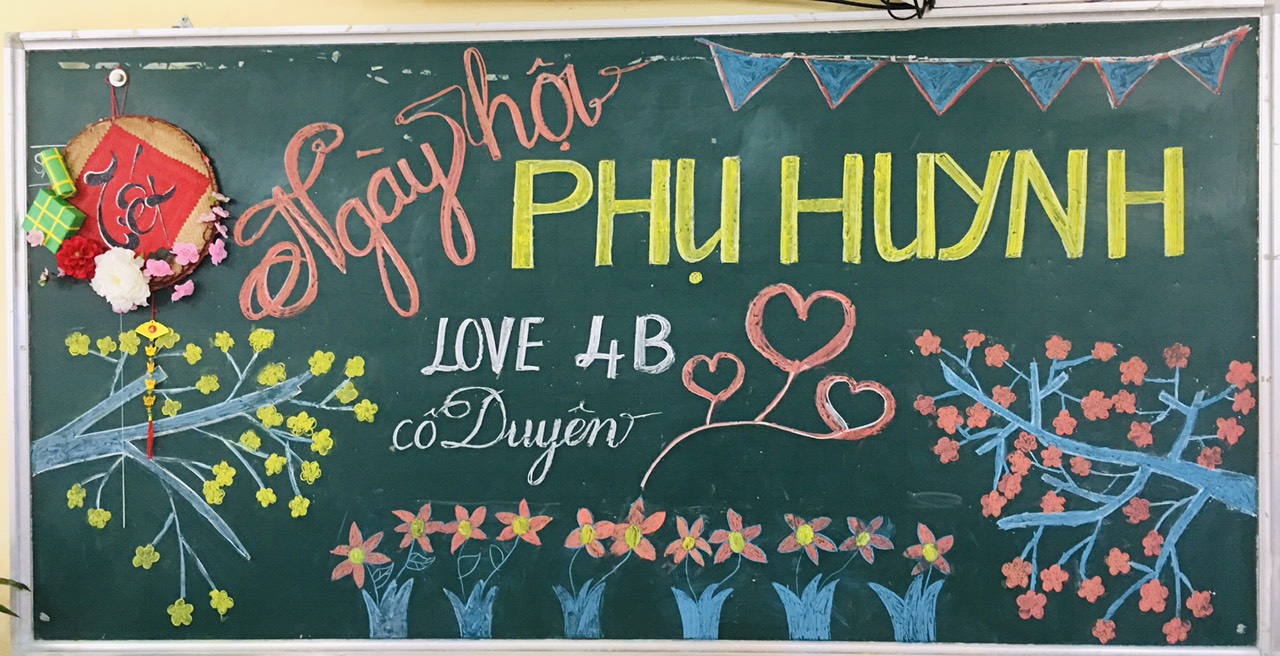 Tết
Ngày hội
PHỤ HUYNH
LOVE 4B
cô Duyên